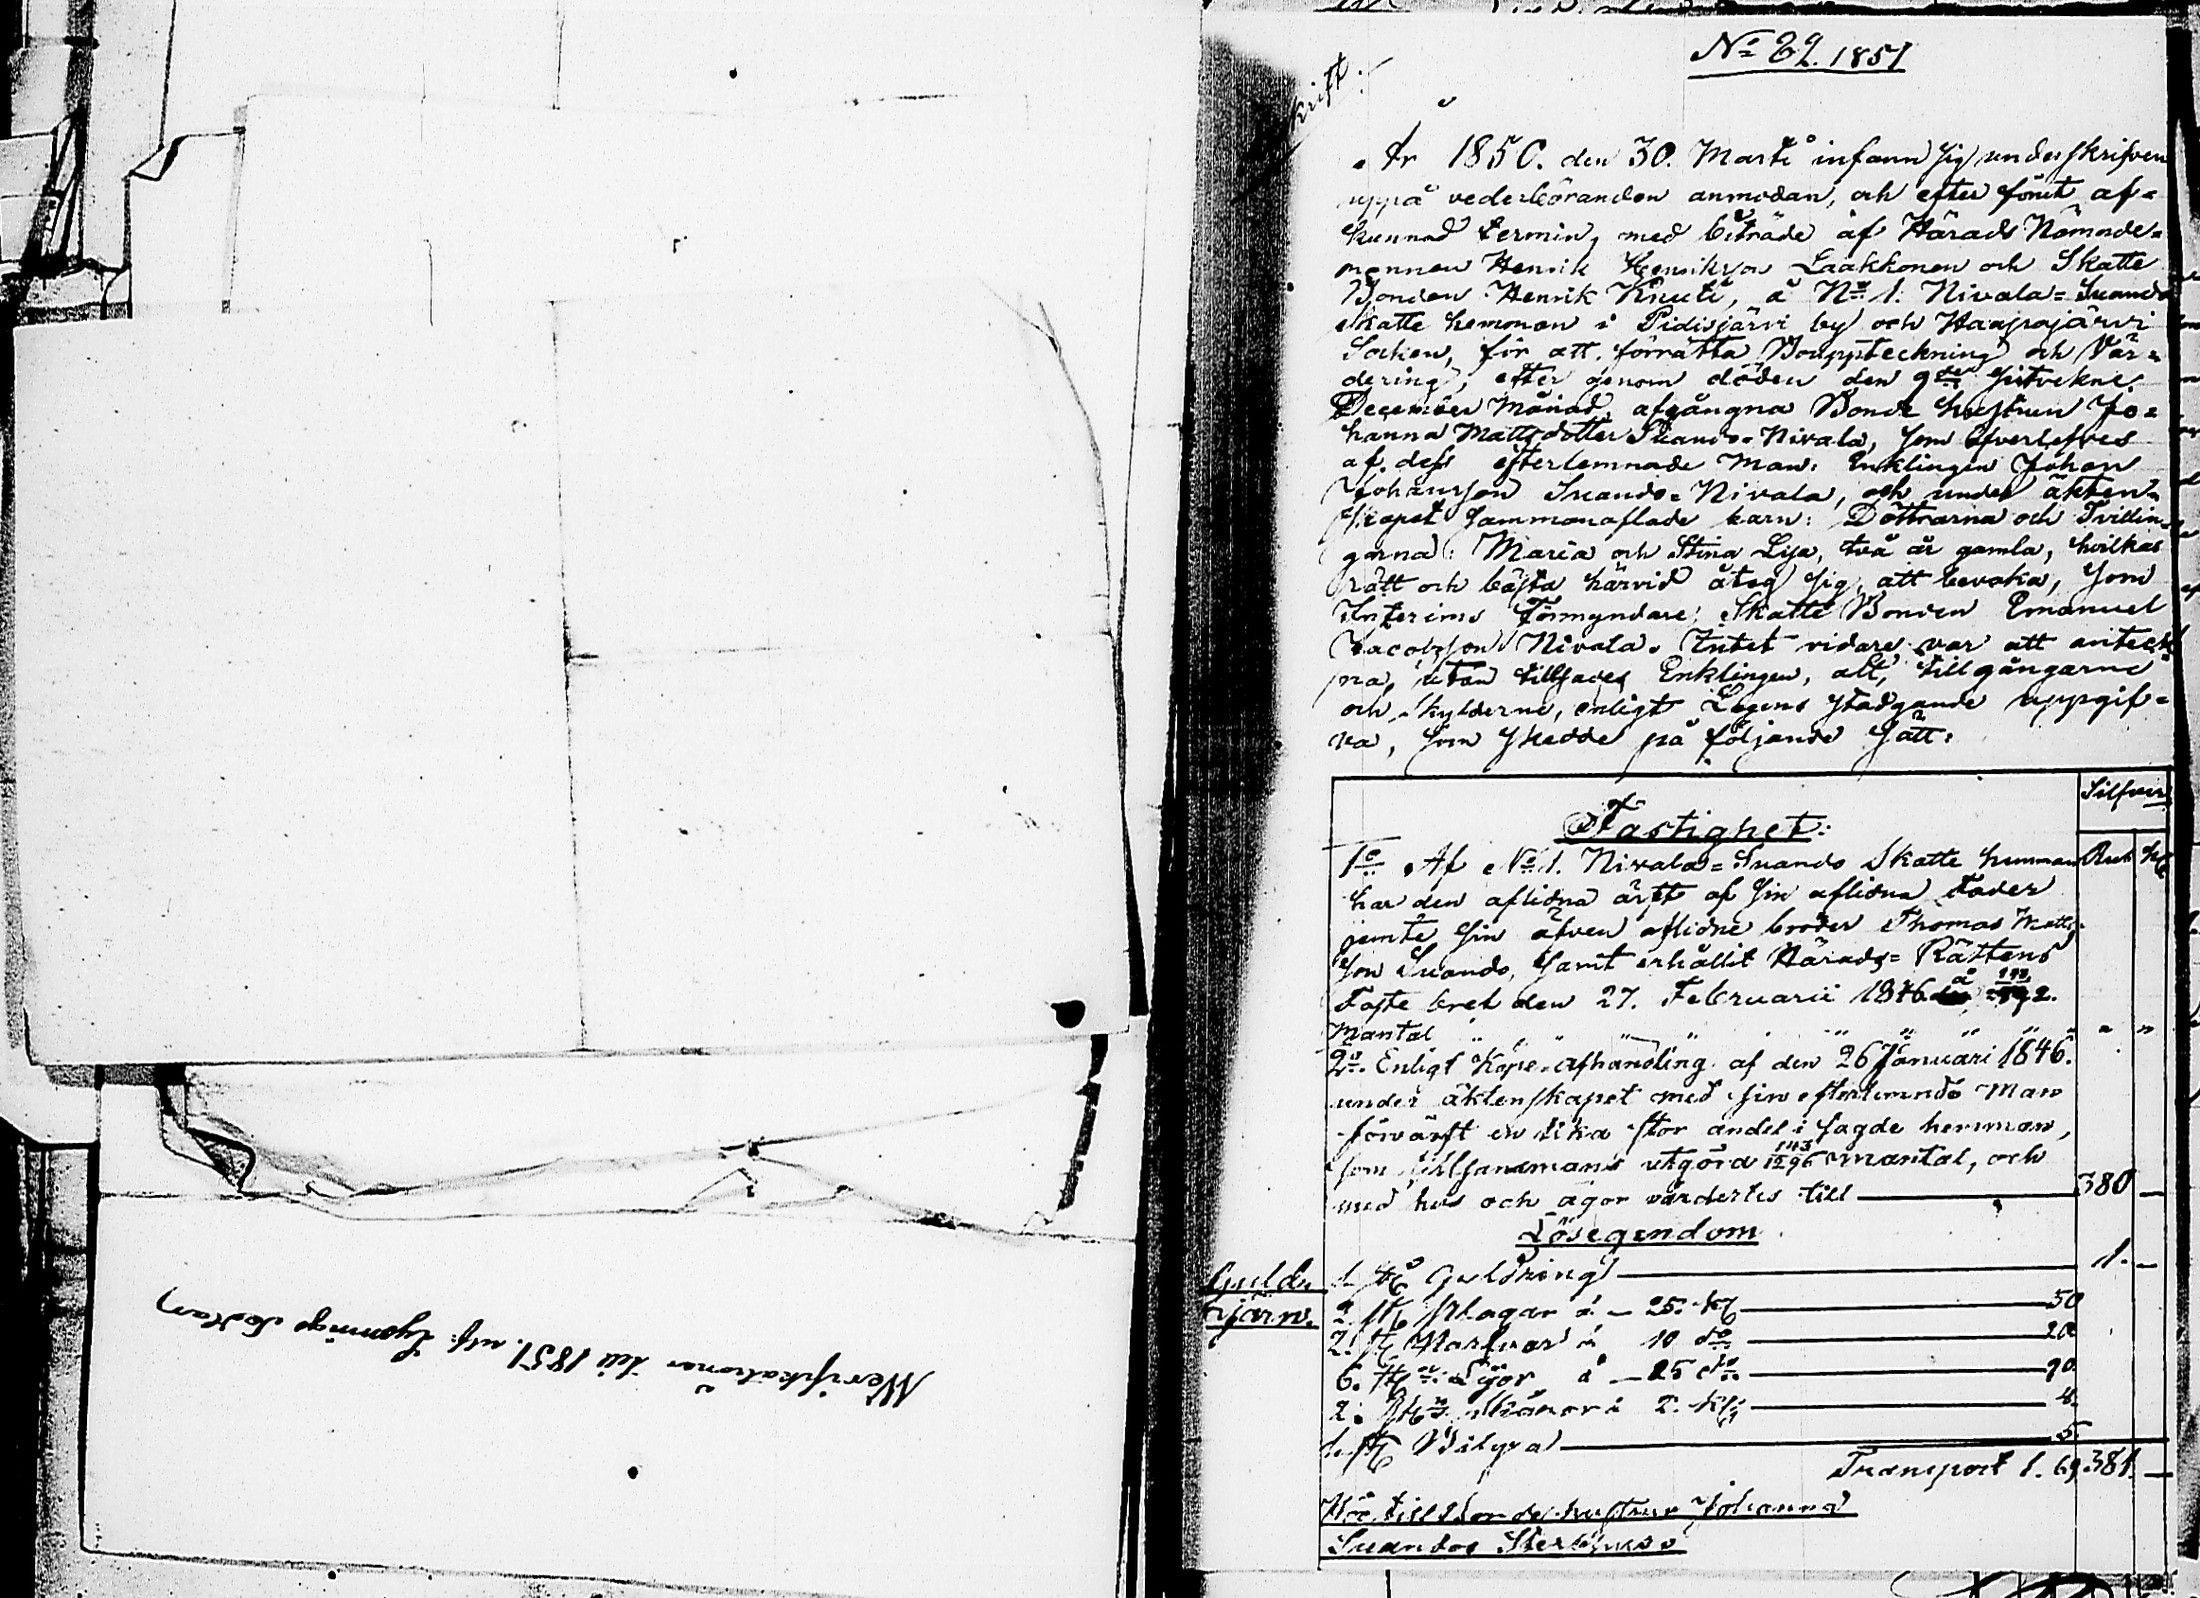 Verifikationer till 1851.
No 89. 1851
År 1850. den 30. Marti infann sig underskrifven
uppå vederböranden anmodan, och efter förut af=
kunnad termin, med biträde af Härads Nämnde=
mannen Henrik Henriksson Laakkonen och Skatte
Bonden Henrik Knuti, å No 1. Nivala=Suando
skatte hemman i Pidisjärvi by och Haapajärvi
Socken, för att förrätta Bouppteckning och Vär=
dering, efter genom döden den 9de sistvekne
December Månad, afgångna Bonde hustrun Jo=
hanna Mattsdotter Suando-Nivala, som öfverlefves
af dess efterlemnade Man: Enklingen Johan
Johansson Suando=Nivala, och under äkten=
skapet sammanaflade barn: Döttrarna och Tvillin=
garna: Maria och Stina Lisa, två år gamla, hvilkas
rätt och bästa härvid åtog sig, att bevaka, som
Interims Förmyndare, Skatte Bonden Emanuel
Jacobsson Nivala. Intet vidare var att anteck
na, utan tillsades Enklingen, att, tillgångarne
och skylderne, enligt Lagens stadgande uppgif=
va, som skedde på följande sätt:
Silfver
Fastighet:
1o Af No 1. Nivala=Suando Skatte hemman Rub K
har den aflidna ärft af sin aflidna Fader
jemte sin äfven aflidne broder Thomas Matts
son Suando, samt erhållit Härads=Rättens
Faste bref den 27. Februarii 1846 å
Mantal
2o Enligt Köpe-afhandling af den 26 Januari 1846.
under äktenskapet med sin efterlemnde Man
förvärft en lika stor andel i sagde hemman,
som tillsammans utgöra 143/1296 mantal, och
med hus och ägor värdertes till 380 —
Lösegendom
1 st Guldring 1. —
2. st Plogar á — 25. K 50
2. st Harfvar á 10 do 20
6. st Lijor á — 25 do 90
2. st á 2. K 4.
1. st Bilyxa 5.
Transport 1. 69 381. —
Hör till Bonde hustrun Johanna
Suandos Sterbhus